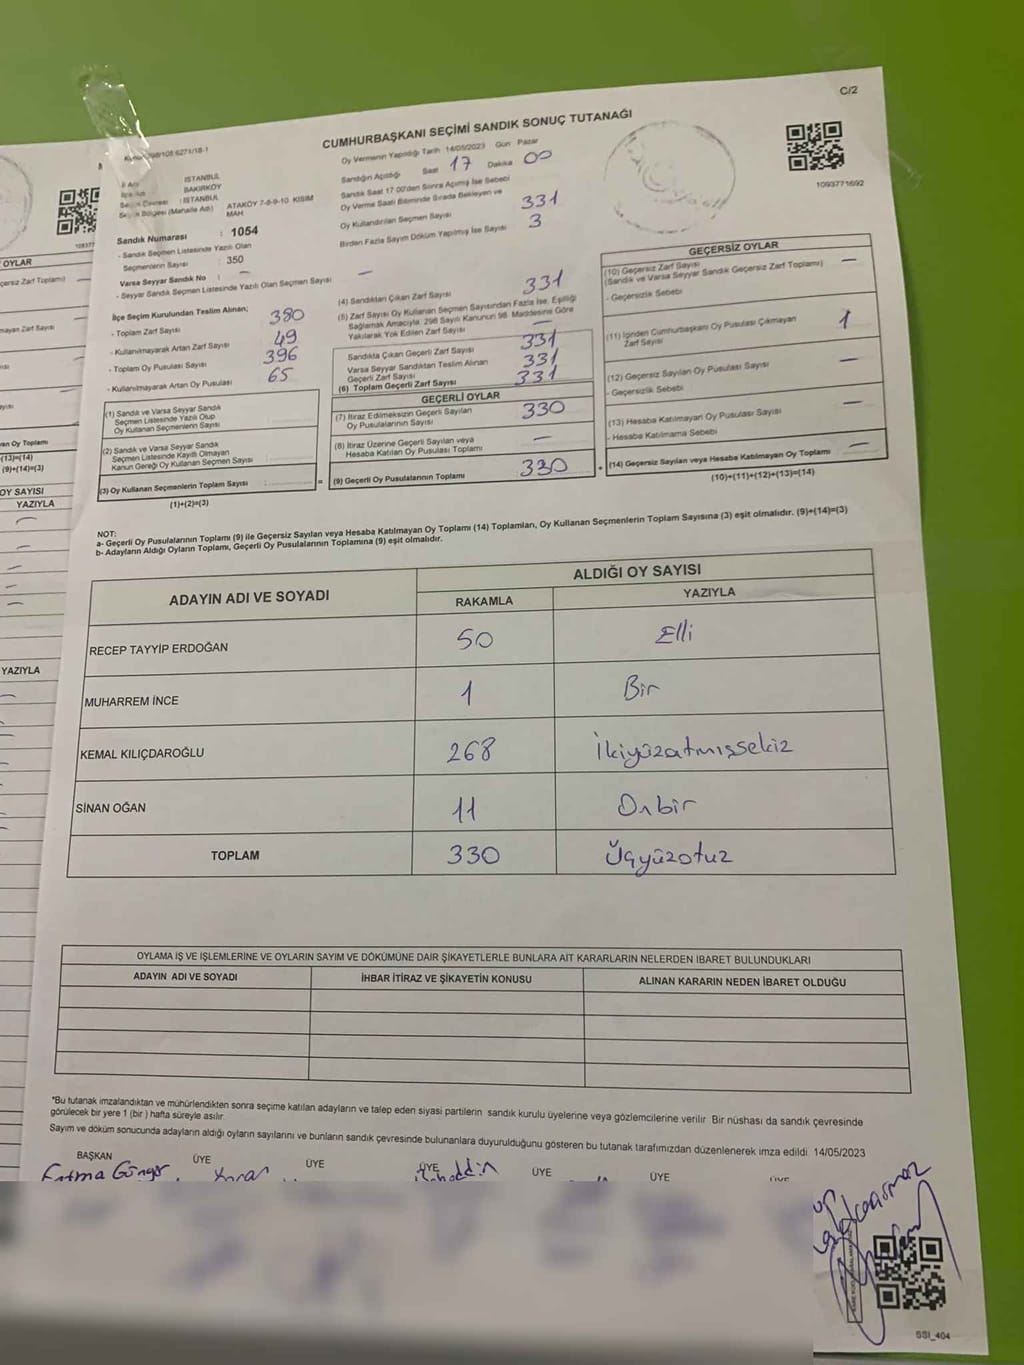 C/2
CUMHURBAŞKANI SEÇİMİ SANDIK SONUÇ TUTANAĞI
Oy Vermenin Yapıldığı Tarih 14/05/2023 Gün Pazar
Sandığın Açıldığı Saat 17 Dakika 00
Sandık Saat 17:00'den Sonra Açılmış İse Sebebi
Oy Verme Saati Bitiminde Sırada Bekleyen ve
Oy Kullandırılan Seçmen Sayısı 331
Birden Fazla Sayım Döküm Yapılmış İse Sayısı 3
1093771692
İSTANBUL
BAKIRKÖY
Seçim Çevresi : İSTANBUL
Seçim Bölgesi (Mahalle Adı) ATAKÖY 7-8-9-10 KISIM MAH
Sandık Numarası : 1054
- Sandık Seçmen Listesinde Yazılı Olan
Seçmenlerin Sayısı : 350
Varsa Seyyar Sandık No : —
- Seyyar Sandık Seçmen Listesinde Yazılı Olan Seçmen Sayısı —
İlçe Seçim Kurulundan Teslim Alınan;
- Toplam Zarf Sayısı 380
- Kullanılmayarak Artan Zarf Sayısı 49
- Toplam Oy Pusulası Sayısı 396
- Kullanılmayarak Artan Oy Pusulası 65
(1) Sandık ve Varsa Seyyar Sandık
Seçmen Listesinde Yazılı Olup
Oy Kullanan Seçmenlerin Sayısı
(2) Sandık ve Varsa Seyyar Sandık
Seçmen Listesinde Kayıtlı Olmayan
Kanun Gereği Oy Kullanan Seçmen Sayısı
(3) Oy Kullanan Seçmenlerin Toplam Sayısı
(1)+(2)=(3)
(4) Sandıktan Çıkan Zarf Sayısı 331
(5) Zarf Sayısı Oy Kullanan Seçmen Sayısından Fazla İse, Eşitliği
Sağlamak Amacıyla, 298 Sayılı Kanunun 98. Maddesine Göre
Yakılarak Yok Edilen Zarf Sayısı —
Sandıkta Çıkan Geçerli Zarf Sayısı 331
Varsa Seyyar Sandıktan Teslim Alınan
Geçerli Zarf Sayısı 331
(6) Toplam Geçerli Zarf Sayısı 331
GEÇERLİ OYLAR
(7) İtiraz Edilmeksizin Geçerli Sayılan
Oy Pusulalarının Sayısı 330
(8) İtiraz Üzerine Geçerli Sayılan veya
Hesaba Katılan Oy Pusulası Toplamı —
(9) Geçerli Oy Pusulalarının Toplamı 330
GEÇERSİZ OYLAR
(10) Geçersiz Zarf Sayısı
(Sandık ve Varsa Seyyar Sandık Geçersiz Zarf Toplamı) —
- Geçersizlik Sebebi
(11) İçinden Cumhurbaşkanı Oy Pusulası Çıkmayan
Zarf Sayısı 1
(12) Geçersiz Sayılan Oy Pusulası Sayısı —
- Geçersizlik Sebebi
(13) Hesaba Katılmayan Oy Pusulası Sayısı —
- Hesaba Katılmama Sebebi
(14) Geçersiz Sayılan veya Hesaba Katılmayan Oy Toplamı —
(10)+(11)+(12)+(13)=(14)
NOT:
a- Geçerli Oy Pusulalarının Toplamı (9) ile Geçersiz Sayılan veya Hesaba Katılmayan Oy Toplamı (14) Toplamları, Oy Kullanan Seçmenlerin Toplam Sayısına (3) eşit olmalıdır. (9)+(14)=(3)
b- Adayların Aldığı Oyların Toplamı, Geçerli Oy Pusulalarının Toplamına (9) eşit olmalıdır.
ADAYIN ADI VE SOYADI ALDIĞI OY SAYISI
RAKAMLA YAZIYLA
RECEP TAYYİP ERDOĞAN 50 Elli
MUHARREM İNCE 1 Bir
KEMAL KILIÇDAROĞLU 268 İkiyüzatmışsekiz
SİNAN OĞAN 11 Onbir
TOPLAM 330 Üçyüzotuz
OYLAMA İŞ VE İŞLEMLERİNE VE OYLARIN SAYIM VE DÖKÜMÜNE DAİR ŞİKAYETLERLE BUNLARA AİT KARARLARIN NELERDEN İBARET BULUNDUKLARI
ADAYIN ADI VE SOYADI İHBAR İTİRAZ VE ŞİKAYETİN KONUSU ALINAN KARARIN NEDEN İBARET OLDUĞU
*Bu tutanak imzalandıktan ve mühürlendikten sonra seçime katılan adayların ve talep eden siyasi partilerin sandık kurulu üyelerine veya gözlemcilerine verilir. Bir nüshası da sandık çevresinde
görülecek bir yere 1 (bir) hafta süreyle asılır.
Sayım ve döküm sonucunda adayların aldığı oyların sayılarını ve bunların sandık çevresinde bulunanlara duyurulduğunu gösteren bu tutanak tarafımızdan düzenlenerek imza edildi. 14/05/2023
BAŞKAN ÜYE ÜYE ÜYE ÜYE ÜYE ÜYE
Fatma Güngör
SSI_404
OYLAR
OY SAYISI
YAZIYLA
YAZIYLA